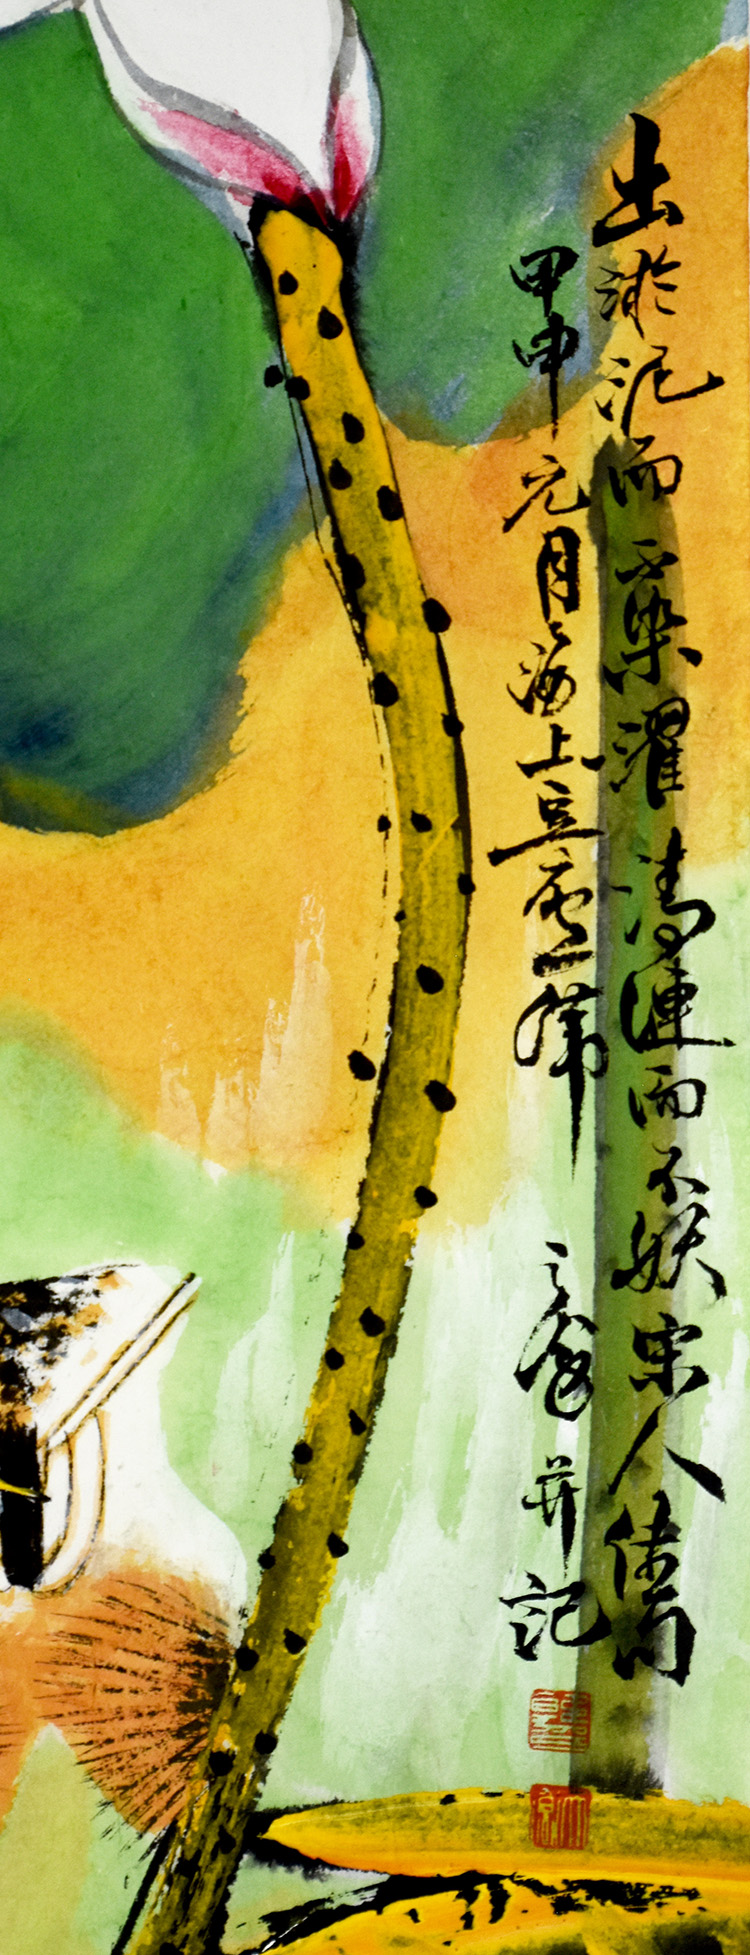 出淤泥而不染濯清漣而不妖宋人佳句
甲申元月海上豆并記